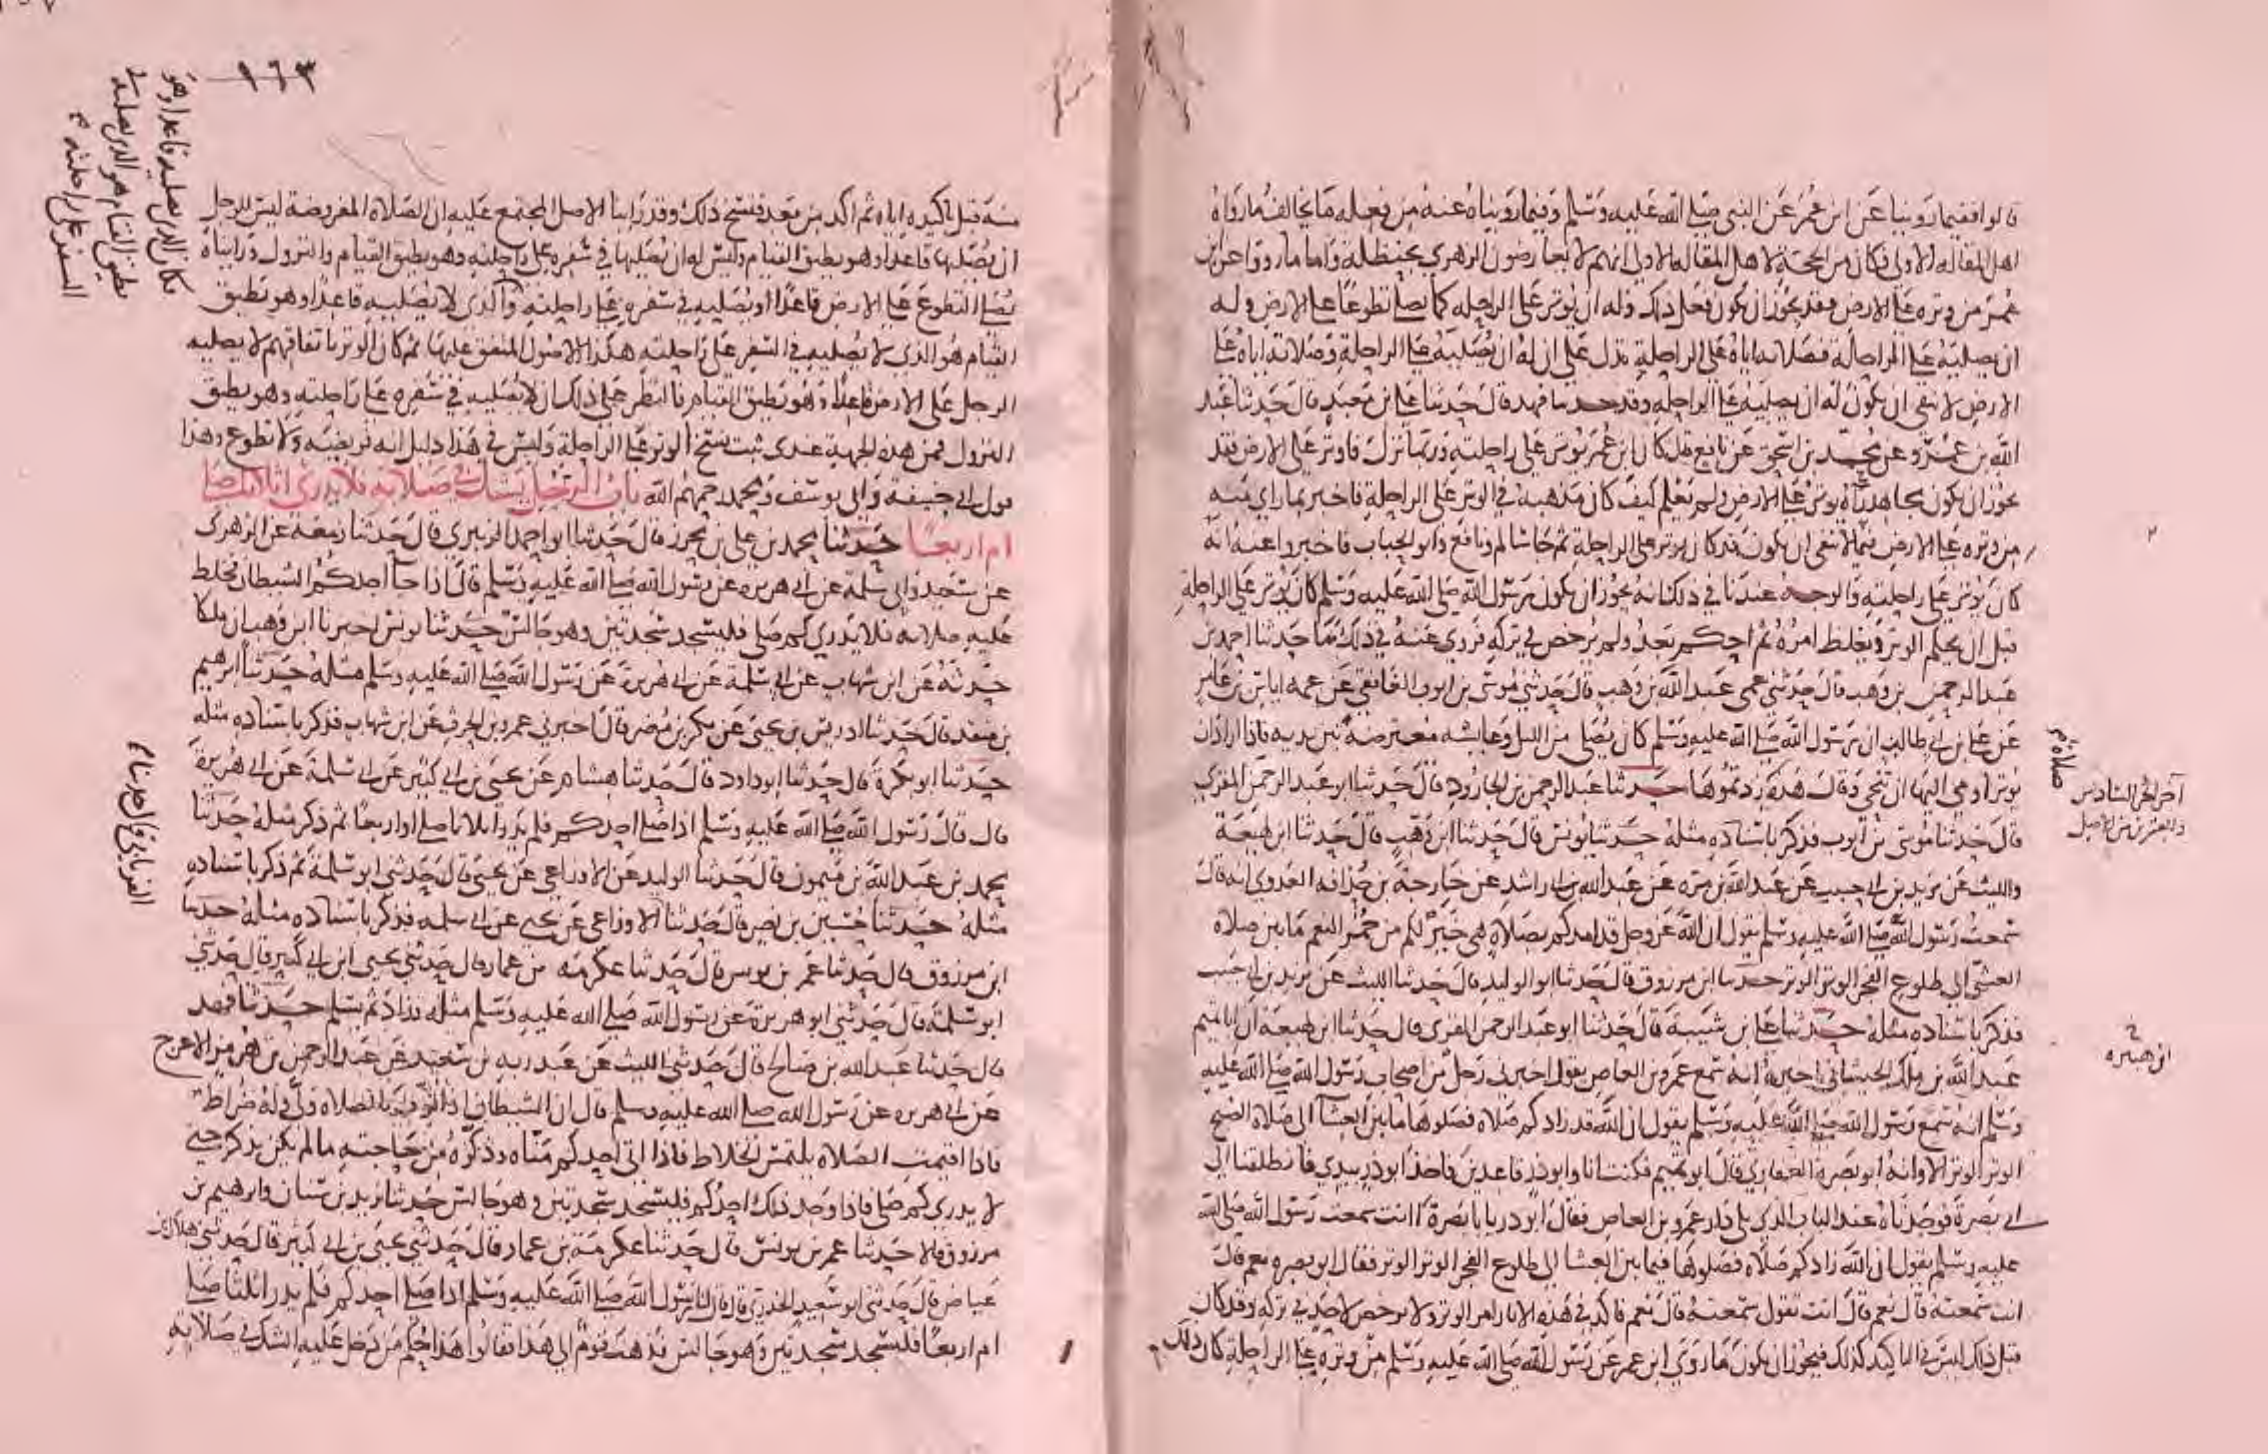 قالوا ففيما روينا عن ابن عمر عن النبي صلى الله عليه وسلم وفيما رويناه عنه من فعله ما يخالف ما رواه
اهل المقاله الاولى فكان من الحجة لاهل المقاله الاولى انهم لا يعارضون الزهري بحنظلة واما ما روي عن ابن
عمر من وتره على الارض فقد يجوز ان يكون فعل ذلك وله ان يوتر على الراحله كما يصلي تطوعا على الارض وله
ان يصليه على الراحلة فصلاته اياه على الراحلة تدل على ان له ان يصليه على الراحلة وصلاته اياه على
الارض لا تنفي ان يكون له ان يصليه على الراحله وقد حدثنا فهد قال حدثنا علي بن معبد قال حدثنا عبيد
الله بن عمرو عن محمد بن اسحق عن نافع قال كان ابن عمر يوتر على راحلته وربما نزل فاوتر على الارض فقد
يجوز ان يكون مجاهد رآه يوتر على الارض ولم يعلم كيف كان مذهبه في الوتر على الراحلة فاخبر بما راى منه
من وتره على الارض فيما لا ينفي ان يكون قد كان يوتر على الراحلة ثم جا سالم ونافع وابو الحباب فاخبروا عنه انه
كان يوتر على راحلته والوجه عندنا في ذلك انه يجوز ان يكون رسول الله صلى الله عليه وسلم كان يوتر على الراحلة
قبل ان يحكم الوتر ويغلظ امره ثم احكم بعد ولم يرخص في تركه فروي عنه في ذلك ما حدثنا احمد بن
عبد الرحمن بن وهب قال حدثني عمي عبد الله بن وهب قال حدثني موسى بن ايوب الغافقي عن عمه اياس بن عامر
عن علي بن ابي طالب ان رسول الله صلى الله عليه وسلم كان يصلي من الليل وعايشه معترضة بين يديه فاذا اراد ان
يوتر اومى اليها ان تنحي وقال هذه زدتموها حدثنا عبد الرحمن بن الجارود قال حدثنا ابو عبد الرحمن المقري
قال حدثنا موسى بن ايوب فذكر باسناده مثله حدثنا يونس قال حدثنا ابن وهب قال حدثنا ابن لهيعة
والليث عن يزيد بن ابي حبيب عن عبد الله بن مره عن عبد الله بن ابي راشد عن خارجة بن حذافه العدوي انه قال
سمعت رسول الله صلى الله عليه وسلم يقول ان الله عز وجل قد امدكم بصلاة هي خير لكم من حمر النعم ما بين صلاة
العشى الى طلوع الفجر الوتر الوتر حدثنا ابن مرزوق قال حدثنا ابو الوليد قال حدثنا الليث عن يزيد بن ابي حبيب
فذكر باسناده مثله حدثنا علي بن شيبة قال حدثنا ابو عبد الرحمن المقري قال حدثنا ابن لهيعة ان ابا تميم
عبد الله بن ملك الجيشاني اخبره انه سمع عمرو بن العاص يقول اخبرني رجل من اصحاب رسول الله صلى الله عليه
وسلم انه سمع رسول الله صلى الله عليه وسلم يقول ان الله قد زادكم صلاة فصلوها ما بين العشا الى صلاة الصبح
الوتر الوتر الا وانه ابو بصرة الغفاري قال ابو تميم فكنت انا وابو ذر قاعدين فاخذ ابو ذر بيدي فانطلقنا الى
ابي بصرة فوجدناه عند الباب الذي يلي دار عمرو بن العاص فقال ابو ذر يا ابا بصرة اانت سمعت رسول الله صلى الله
عليه وسلم يقول ان الله زادكم صلاة فصلوها فيما بين العشا الى طلوع الفجر الوتر الوتر فقال ابو بصره نعم قال
انت سمعته قال نعم قال انت تقول سمعته قال نعم فاكد في هذه الاثار امر الوتر ولا يرخص لاحد في تركه وقد كان
قبل ذلك ليس في التاكيد كذلك فيجوز ان يكون ما روى ابن عمر عن رسول الله صلى الله عليه وسلم من وتره على الراحلة كان ذلك
صلاة
آخر الجزء السادس
والعشرين من الاصل
ابن هبيره
١٦٣
مكان الذي يصليه قاعدا وهو
يطيق القيام هو الذي يصليه في
السفر على راحلته
منه قبل تاكيده اياه ثم اكد من بعد فنسخ ذلك وقد راينا الاصل المجتمع عليه ان الصلاة المفروضة ليس للرجل
ان يصليها قاعدا وهو يطيق القيام وليس له ان يصليها في سفره على راحلته وهو يطيق القيام والنزول ورايناه
يصلي التطوع على الارض قاعدا او يصليه في سفره على راحلته والذي لا يصليه قاعدا وهو يطيق
القيام هو الذي لا يصليه في السفر على راحلته هكذا الاصول المتفق عليها ثم كان الوتر باتفاقهم لا يصليه
الرجل على الارض قاعدا وهو يطيق القيام فالنظر على ذلك ان لا يصليه في سفره على راحلته وهو يطيق
النزول فمن هذه الجهة عندي ثبت نسخ الوتر على الراحلة وليس في هذا دليل انه فريضه ولا تطوع وهذا
قول ابي حنيفة وابي يوسف ومحمد رحمهم الله باب الرجل يشك في صلاته فلا يدري اثلاثا صلى
ام اربعا حدثنا محمد بن علي بن محرز قال حدثنا ابو احمد الزبيري قال حدثنا زمعة عن الزهري
عن سعيد وابي سلمة عن ابي هريره عن رسول الله صلى الله عليه وسلم قال اذا جآ احدكم الشيطان فخلط
عليه صلاته فلا يدري كم صلى فليسجد سجدتين وهو جالس حدثنا يونس اخبرنا ابن وهب ان ملكا
حدثه عن ابن شهاب عن ابي سلمة عن ابي هريرة عن رسول الله صلى الله عليه وسلم مثله حدثنا ابرهيم
بن منقذ قال حدثنا ادريس بن يحيى عن بكر بن مضر قال اخبرني عمرو بن الحرث عن ابن شهاب فذكر باسناده مثله
حدثنا ابو بكرة قال حدثنا ابو داود قال حدثنا هشام عن يحيى بن ابي كثير عن ابي سلمة عن ابي هريرة
قال قال رسول الله صلى الله عليه وسلم اذا صلى احدكم فلم يدر اثلاثا صلى او اربعا ثم ذكر مثله حدثنا
محمد بن عبد الله بن ميمون قال حدثنا الوليد عن الاوزاعي عن يحيى قال حدثني ابو سلمة ثم ذكر باسناده
مثله حدثنا حسين بن نصر قال حدثنا الاوزاعي عن يحيى عن ابي سلمه فذكر باسناده مثله حدثنا
ابن مرزوق قال حدثنا عمر بن يونس قال حدثنا عكرمه بن عمار قال حدثني يحيى ابن ابي كثير قال حدثني
ابو سلمة قال حدثني ابو هريرة عن رسول الله صلى الله عليه وسلم مثله وزاد ثم يسلم حدثنا فهد
قال حدثنا عبد الله بن صالح قال حدثني الليث عن عبد ربه بن سعيد عن عبد الرحمن بن هرمز الاعرج
عن ابي هريره عن رسول الله صلى الله عليه وسلم قال ان الشيطان اذا ثوب بالصلاة ولى وله ضراط
فاذا اقيمت الصلاة يلتمس الخلاط فاذا اتى احدكم مناه وذكره من حاجته ما لم يكن يذكر حتى
لا يدري كم صلى فاذا وجد ذلك احدكم فليسجد سجدتين وهو جالس حدثنا يزيد بن سنان وابرهيم بن
مرزوق قالا حدثنا عمر بن يونس قال حدثنا عكرمة بن عمار قال حدثني يحيى بن ابي كثير قال حدثني هلال بن
عياض قال حدثني ابو سعيد الخدري قال قال رسول الله صلى الله عليه وسلم اذا صلى احدكم فلم يدر اثلثا صلى
ام اربعا فليسجد سجدتين وهو جالس فذهب قوم الى هذا فقالوا هذا حكم من دخل عليه الشك في صلاته
الفريابي قال حدثنا